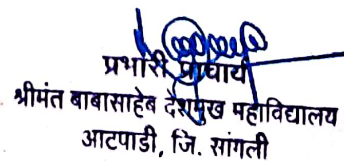 प्रभारी प्राचार्य
श्रीमंत बाबासाहेब देशमुख महाविद्यालय
आटपाडी, जि. सांगली